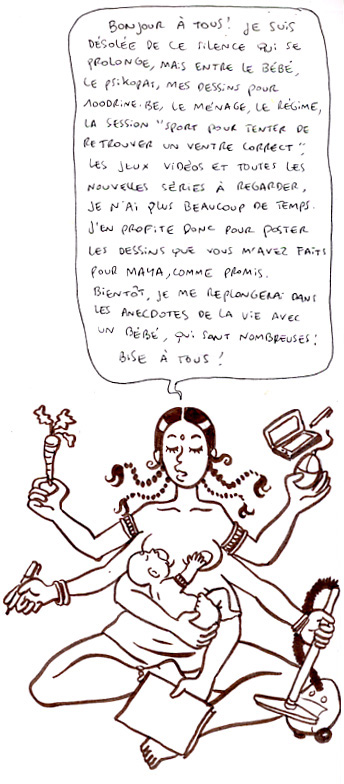 BONJOUR À TOUS! JE SUIS
DÉSOLÉE DE CE SILENCE QUI SE
PROLONGE, MAIS ENTRE LE BÉBÉ,
LE PSIKOPAT, MES DESSINS POUR
100DRINE.BE, LE MÉNAGE, LE RÉGIME,
LA SESSION "SPORT POUR TENTER DE
RETROUVER UN VENTRE CORRECT",
LES JEUX VIDÉOS ET TOUTES LES
NOUVELLES SÉRIES À REGARDER,
JE N'AI PLUS BEAUCOUP DE TEMPS.
J'EN PROFITE DONC POUR POSTER
LES DESSINS QUE VOUS M'AVEZ FAITS
POUR MAYA, COMME PROMIS.
BIENTÔT, JE ME REPLONGERAI DANS
LES ANECDOTES DE LA VIE AVEC
UN BÉBÉ, QUI SONT NOMBREUSES!
BISE À TOUS!